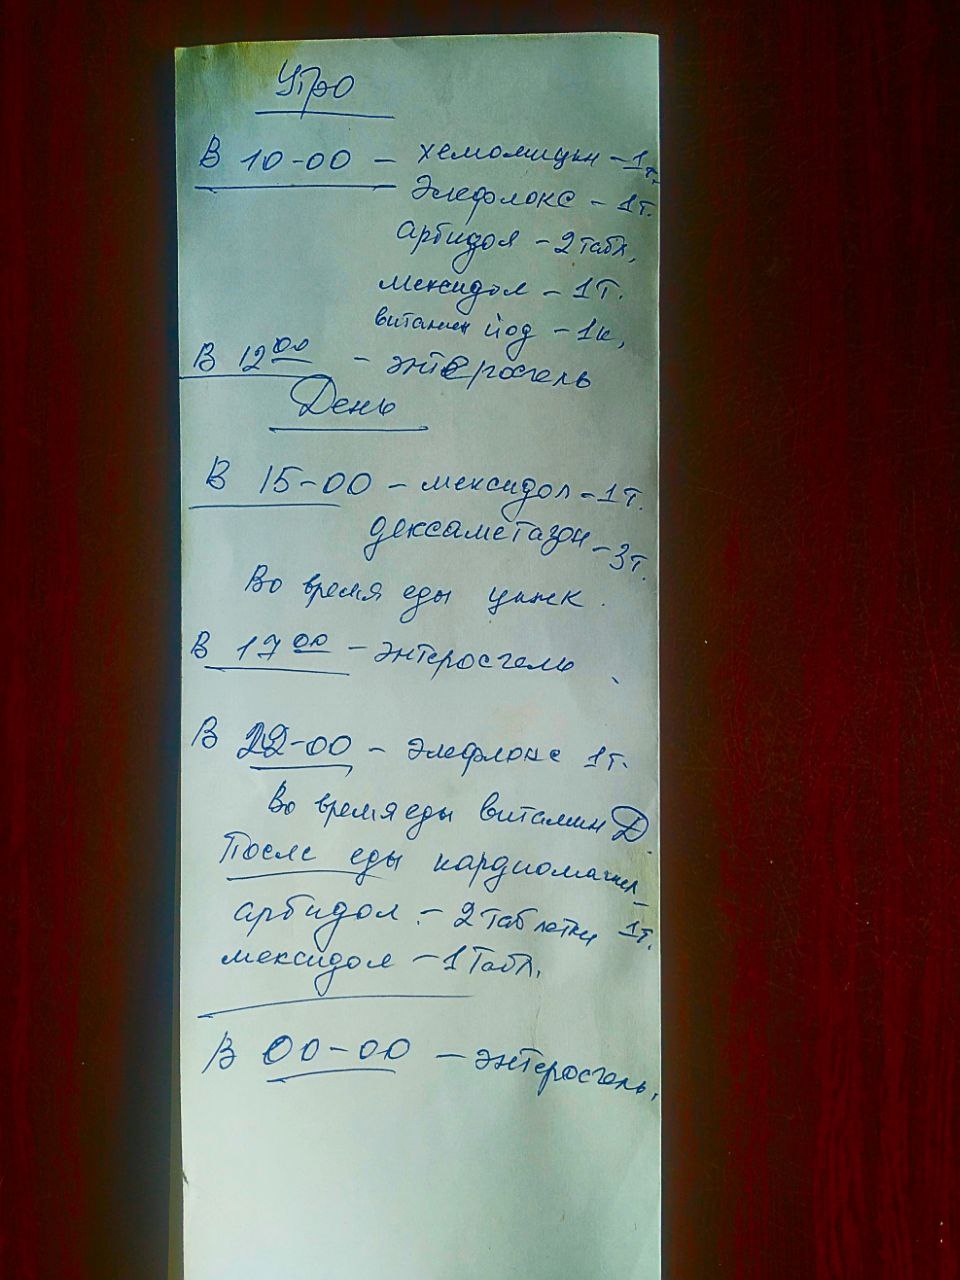 Утро
В 10-00 - хемомицин - 1т.
Элефлокс - 1т.
арбидол - 2 табл,
мексидол - 1т.
витамин йод - 1к,
В 12 00 - энтеросгель
День
В 15-00 - мексидол - 1т.
дексаметазон - 3т.
Во время еды цинк.
В 17 00 - энтеросгель
В 22-00 - элефлокс 1т.
Во время еды витамин D.
После еды кардиомагнил - 1т.
арбидол - 2 таблетки
мексидол - 1 табл.
В 00-00 - энтеросгель.